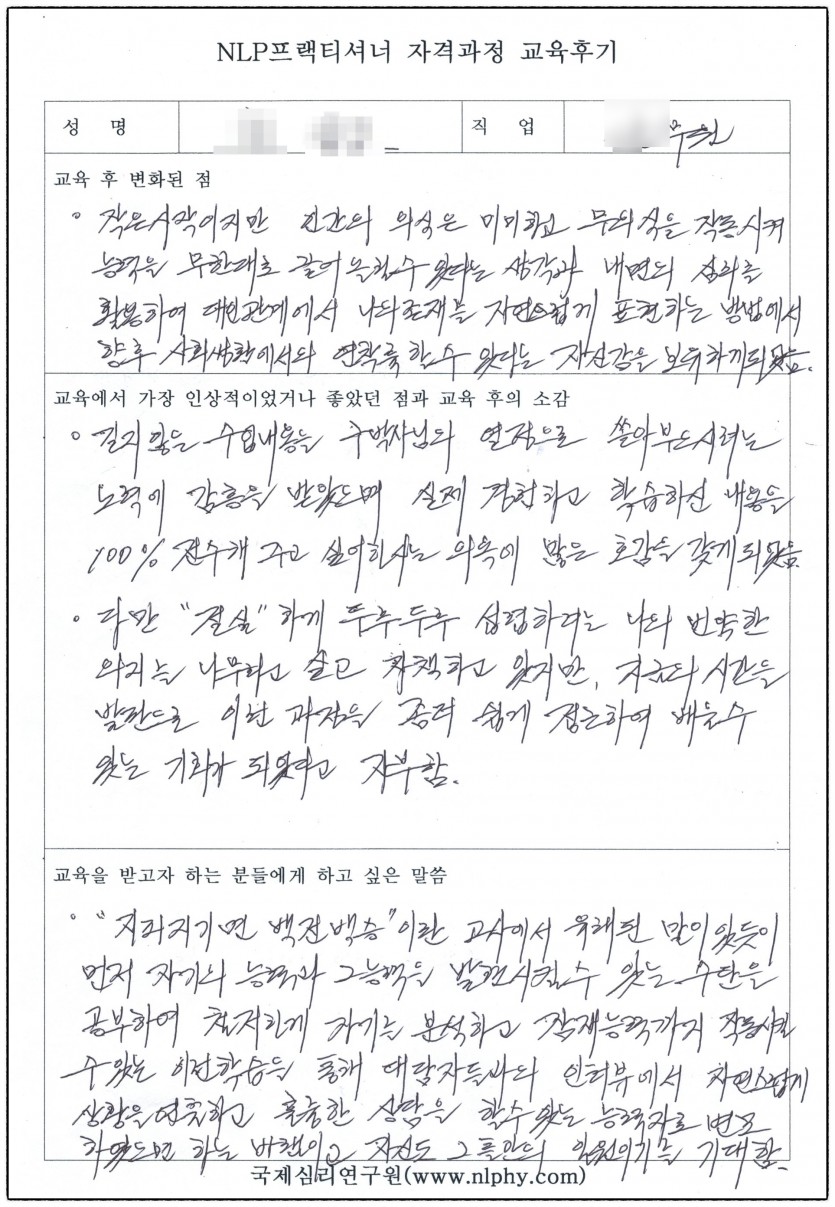 NLP프랙티셔너 자격과정 교육후기
성 명
직 업
무원
교육 후 변화된 점
작은시작이지만 인간의 의식은 미미하고 무의식을 작동시켜
능력을 무한대로 끌어 올릴수 있다는 생각과 내면의 심리를
활용하여 대인관계에서 나의존재를 자연스럽게 표현하는 방법에서
향후 사회생활에서의 연착륙 할수 있다는 자신감을 보유하게되었음.
교육에서 가장 인상적이었거나 좋았던 점과 교육 후의 소감
길지않은 수업내용을 구박사님의 열정으로 쏟아부으시려는
노력에 감흥을 받았으며 실제 경험하고 학습하신 내용을
100% 전수해 주고 싶어하시는 의욕에 많은 호감을 갖게되었음
다만 "절실"하게 두루두루 섭렵하려는 나의 빈약한
의지를 나무라고 싶고 자책하고 있지만, 지금의 시간을
발판으로 이런 과정을 좀더 쉽게 접근하여 배울수
있는 기회가 되었다고 자부함.
교육을 받고자 하는 분들에게 하고 싶은 말씀
"지피지기면 백전백승"이란 고사에서 유래된 말이있듯이
먼저 자기의 능력과 그능력을 발전시킬수 있는 수단을
공부하여 철저하게 자기를 분석하고 잠재능력까지 작동시킬
수있는 이런학습을 통해 대담자들과의 인터뷰에서 자연스럽게
상황을연출하고 훌륭한 상담을 할수있는 능력자로 변모
하였으면 하는 바램이고 자신도 그 일원이기를 기대함.
국제심리연구원(www.nlphy.com)